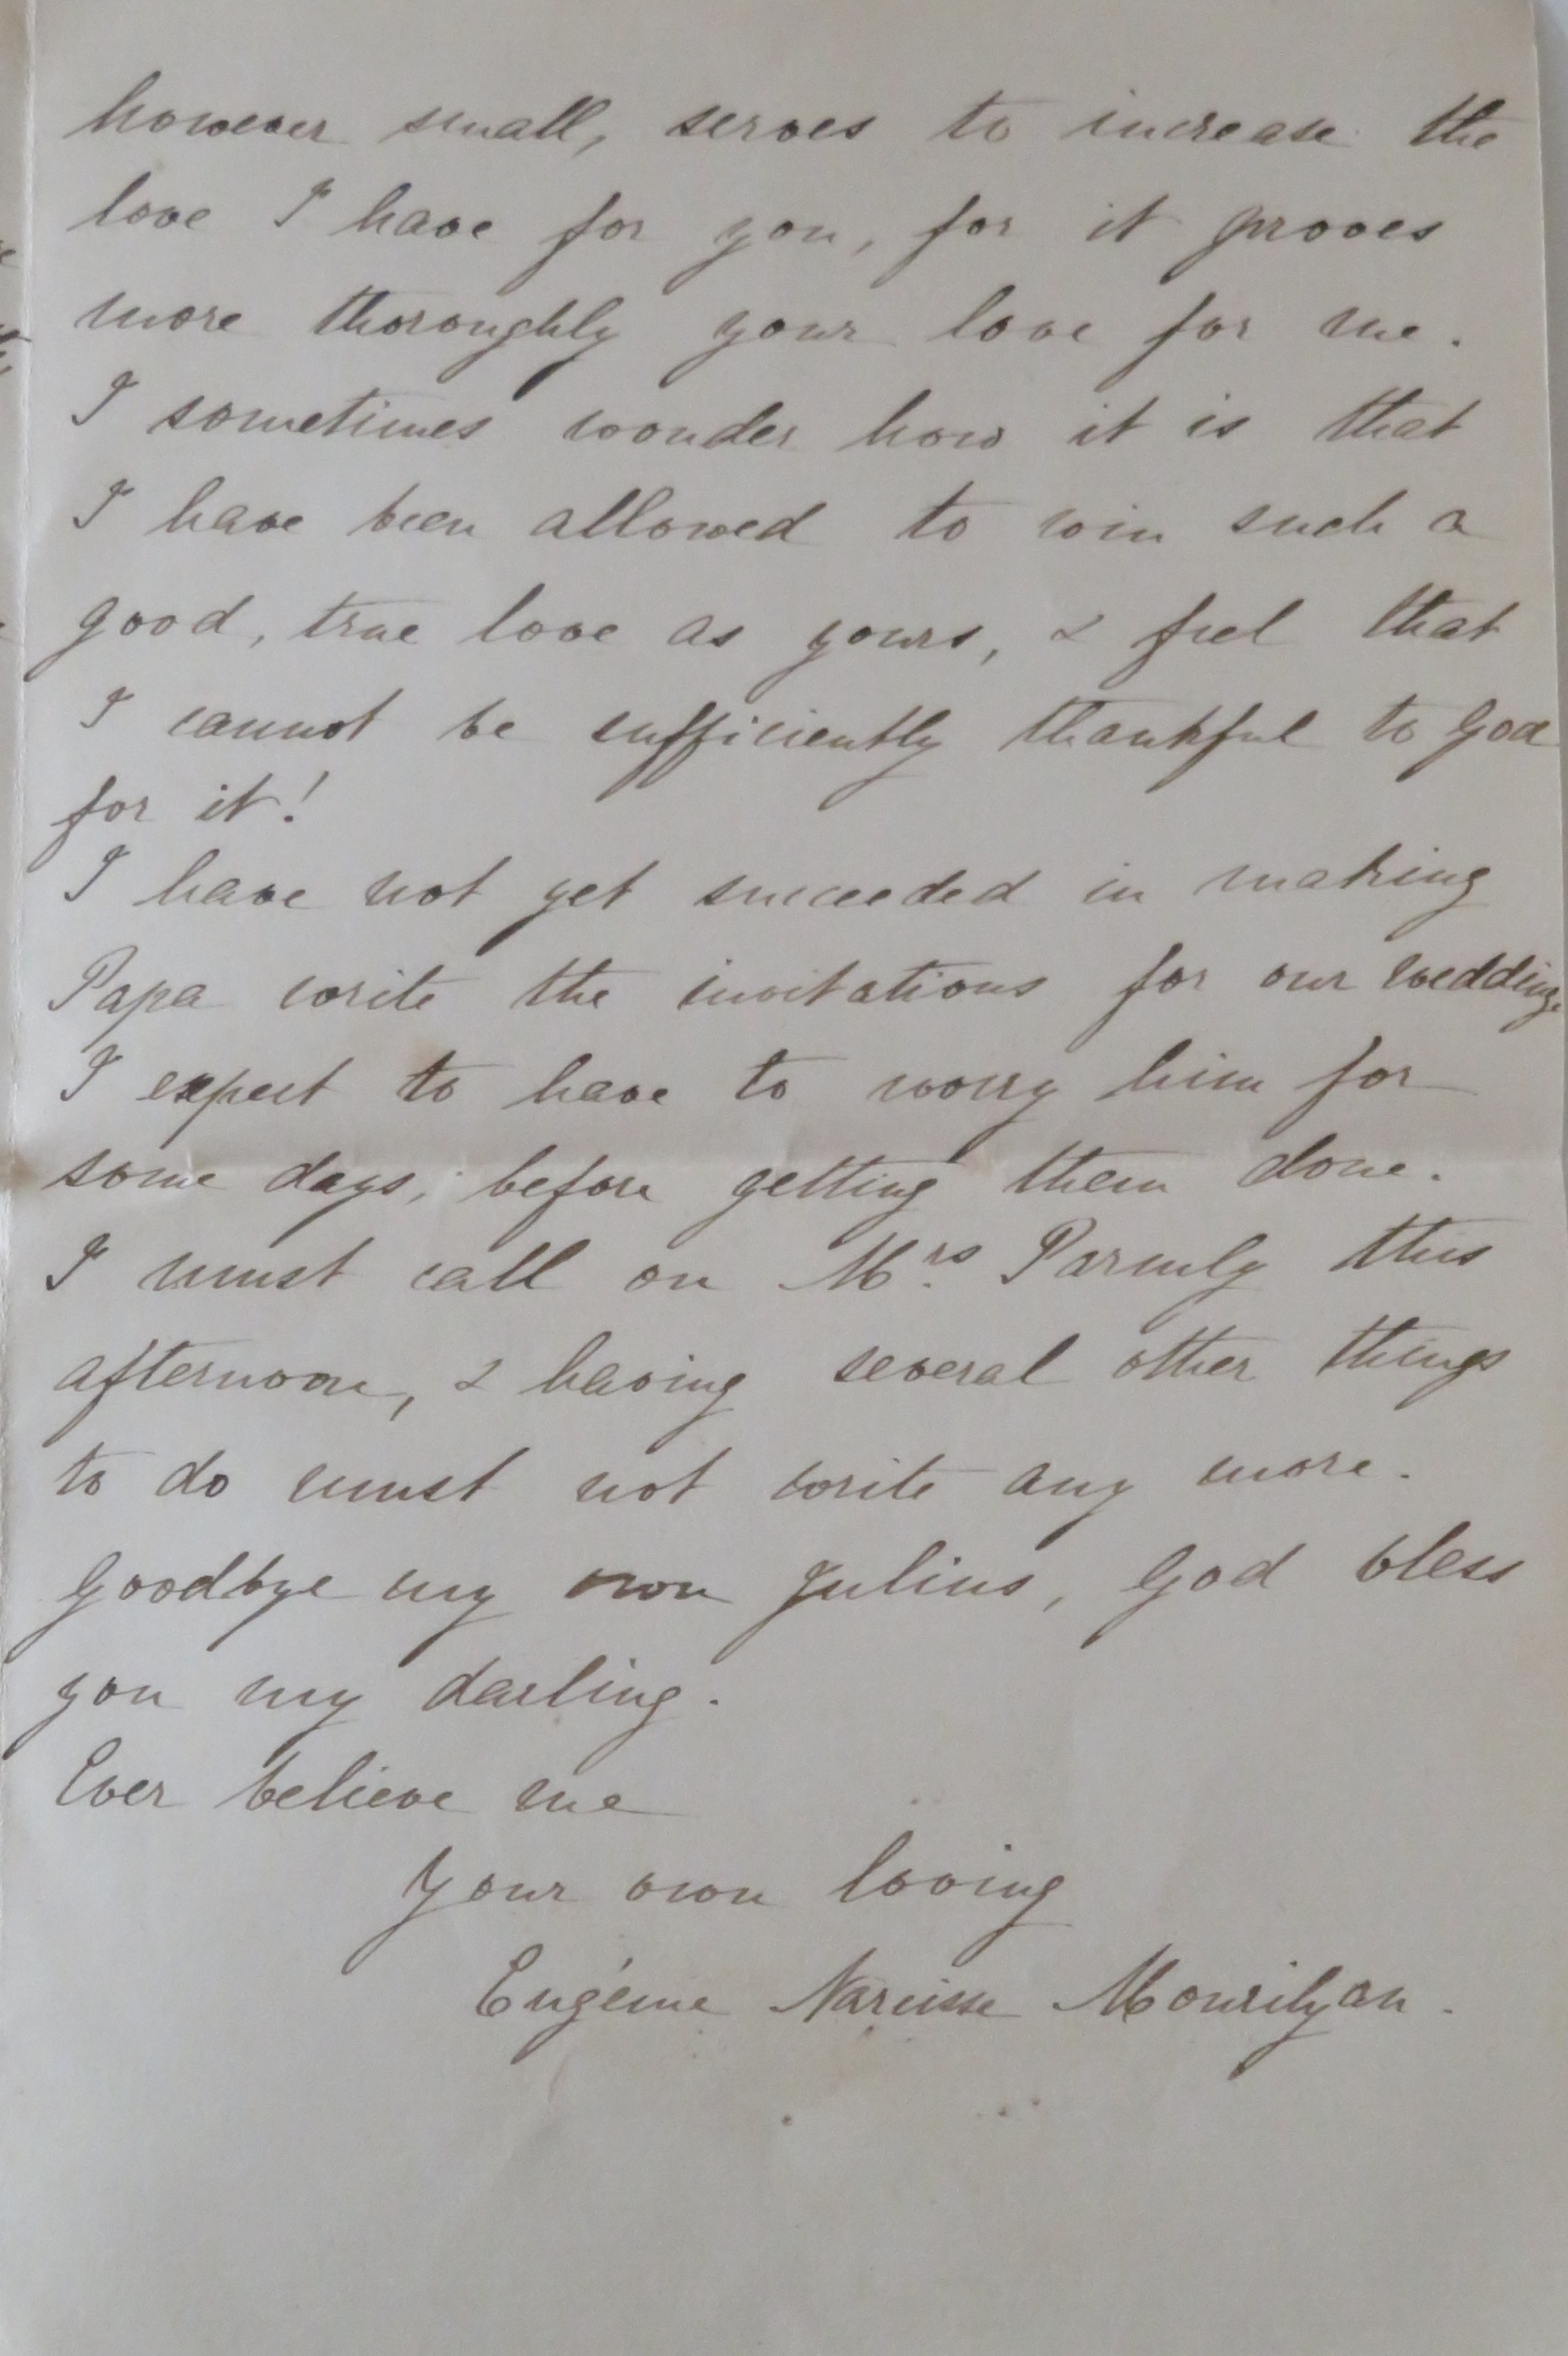 however small, serves to increase the
love I have for you, for it proves
more thoroughly your love for me.
I sometimes wonder how it is that
I have been allowed to win such a
good, true love as yours, & feel that
I cannot be sufficiently thankful to God
for it!
I have not yet succeeded in making
Papa write the invitations for our wedding.
I expect to have to worry him for
some days, before getting them done.
I must call on Mrs. Parmly this
afternoon, & having several other things
to do must not write any more.
Goodbye my own Julius, God bless
you my darling.
Ever believe me
Your own loving
Eugénie Narcisse Mourilyan.